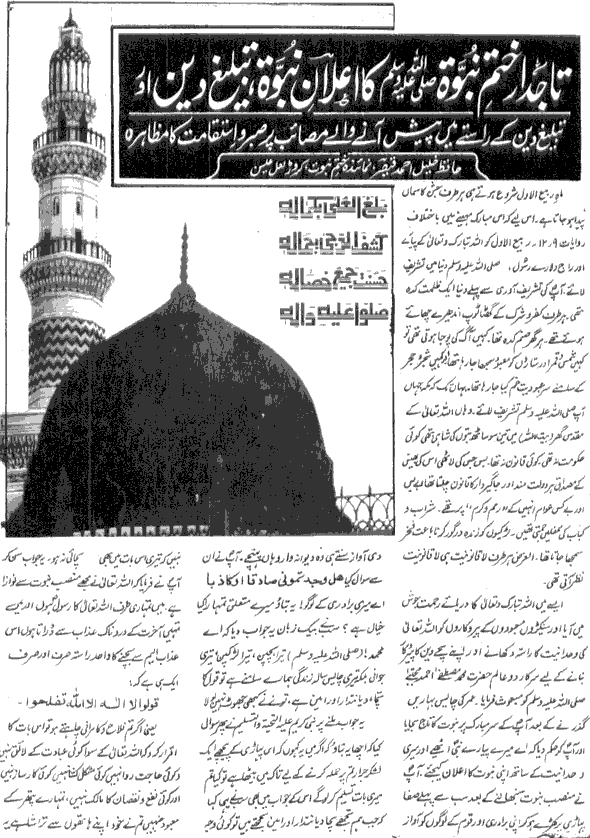 تاجدارِ ختمِ نبوّۃ صلی اللہ علیہ وسلم کا اعلانِ نبوّۃ، تبلیغ دین اور
تبلیغ دین کے راستے میں پیش آنے والے مصائب پر صبر و استقامت کا مظاہرہ
بلغ العلیٰ بکمالہ
کشف الدجیٰ بجمالہ
حسنت جمیع خصالہ
صلوا علیہ وآلہ
ماہِ ربیع الاول شروع ہوتے ہی ہر طرف جشن کا سماں
پیدا ہو جاتا ہے۔ اس لیے کہ اس مبارک مہینے میں باختلاف
روایات ۹، ۱۲ ربیع الاول کو اللہ تبارک وتعالیٰ کے پیارے
اور راج دلارے رسول، صلی اللہ علیہ وسلم دنیا میں تشریف
لائے۔ آپؐ کی تشریف آوری سے پہلے دنیا ایک ظلمت کدہ
تھی۔ ہر طرف کفر و شرک کے گھٹا ٹوپ اندھیرے چھائے
ہوئے تھے۔ ہر گھر صنم کدہ تھا۔ کہیں آگ کی پوجا ہوتی تھی تو
کہیں شمس و قمر اور ستاروں کو معبود سمجھا جا رہا تھا اور کہیں شجر و حجر
کے سامنے سرِ عبودیت خم کیا جا رہا تھا۔ یہاں تک کہ مکہ جہاں
آپ صلی اللہ علیہ وسلم تشریف لائے۔ وہاں اللہ تعالیٰ کے
مقدس گھر بیت اللہ میں تین سو ساٹھ بتوں کی شاہی تھی کوئی
حکومت نہ تھی۔ کوئی قانون نہ تھا۔ بس جس کی لاٹھی اس کی بھینس
کے مصداق ہر دولت مند اور جاگیردار کا قانون چلتا تھا، بے بس
اور بے کس عوام انہیں کے "رحم و کرم" پر تھے۔ شراب و
کباب کی محفلیں جمتی تھیں۔ لڑکیوں کو زندہ درگور کرنا باعث فخر
سمجھا جاتا تھا۔ الغرض ہر طرف لاقانونیت ہی لاقانونیت
نظر آتی تھی۔
ایسے میں اللہ تبارک وتعالیٰ کا دریائے رحمت جوش
میں آیا اور سینکڑوں معبودوں کے پجاروں کو اللہ تعالیٰ
کی وحدانیت کا راستہ دکھانے اور اپنے سچے دین کا پیرو کار
بنانے کے لیے سرکارِ دو عالم حضرت محمد مصطفےٰ احمد مجتبےٰ
صلی اللہ علیہ وسلم کو مبعوث فرمایا۔ عمر کی چالیس بہاریں
گذرنے کے بعد آپؐ کے سر مبارک پر نبوت کا تاج سجایا
اور آپؐ کو حکم دیا کہ اے میرے پیارے نبی اٹھیے اور میری
وحدانیت کے ساتھ اپنی نبوت کا اعلان کیجئے۔ آپؐ
نے منصبِ نبوت سنبھالنے کے بعد سب سے پہلے صفا
پہاڑی پر کھڑے ہو کر اپنی برادری اور قوم کے لوگوں کو آواز
دی آواز سنتے ہی وہ دیوانہ وار وہاں پہنچے، آپؐ نے ان
سے سوال کیا ھل وجدتمونی صادقا او کاذبا
اے میری برادری کے لوگو! یہ بتاؤ میرے متعلق تمہارا کیا
خیال ہے؟ سب نے بیک زبان یہ جواب دیا کہ اے
محمد! (صلی اللہ علیہ وسلم) تیرا بچپن، تیرا لڑکپن، تیری
جوانی بلکہ تیری چالیس سالہ زندگی ہمارے سامنے ہے تو قول کا
سچا، دیانتدار اور امین ہے، تو نے کبھی جھوٹ نہیں بولا
یہ جواب ملنے پر نبی کریم علیہ التحیۃ والتسلیم نے پھر سوال
کیا کہ اچھا یہ بتاؤ کہ اگر میں یہ کہوں کہ اس پہاڑی کے پیچھے ایک
لشکرِ جرار تم پر حملہ کرنے کے لیے تاک میں بیٹھا ہے تو کیا تم
میری بات تسلیم کر لو گے اس کے جواب میں بھی سب نے یہی کہا
کہ جب ہم تجھے سچا، دیانتدار اور امین سمجھتے ہیں تو کوئی وجہ
نہیں کہ تیری اس بات میں بھی سچائی نہ ہو۔ یہ جواب سن کر
آپؐ نے فرمایا کہ اللہ تعالیٰ نے مجھے منصبِ نبوت سے نوازا
ہے۔ میں تمہاری طرف اللہ تعالیٰ کا رسول ہوں اور میں
تمہیں آخرت کے دردناک عذاب سے ڈراتا ہوں اس
عذابِ الیم سے بچنے کا واحد راستہ صرف اور صرف
ایک ہی ہے کہ:
قولوا لا الہ الا اللہ تفلحوا۔
یعنی اگر تم فلاح و کامرانی چاہتے ہو تو اس بات کا
اقرار کرو کہ اللہ تعالیٰ کے سوا کوئی عبادت کے لائق نہیں
کوئی حاجت روا نہیں کوئی مشکل کشا نہیں کوئی کارساز نہیں
اور کوئی نفع و نقصان کا مالک نہیں، تمہارے پتھر کے
معبود جنہیں تم نے خود اپنے ہاتھوں سے تراشا ہے یہ